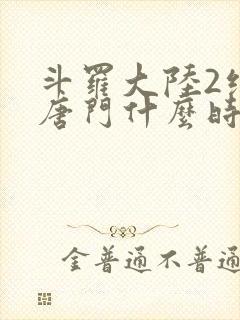 斗羅大陸2
唐門什麼時
金普通不普通